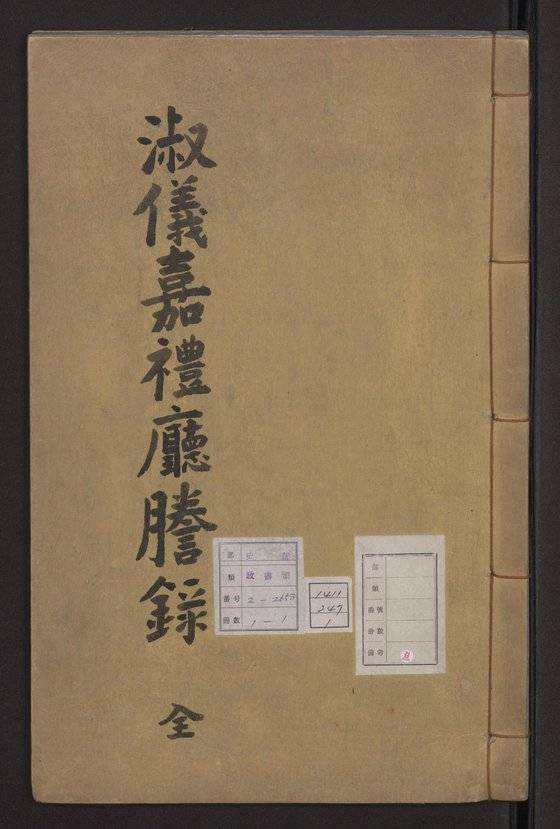 淑儀嘉禮廳謄錄 全
部 史部
類 政書類
番号 2-2653
冊数 1-1
1411
247
1
部
類
番號
冊數
備考